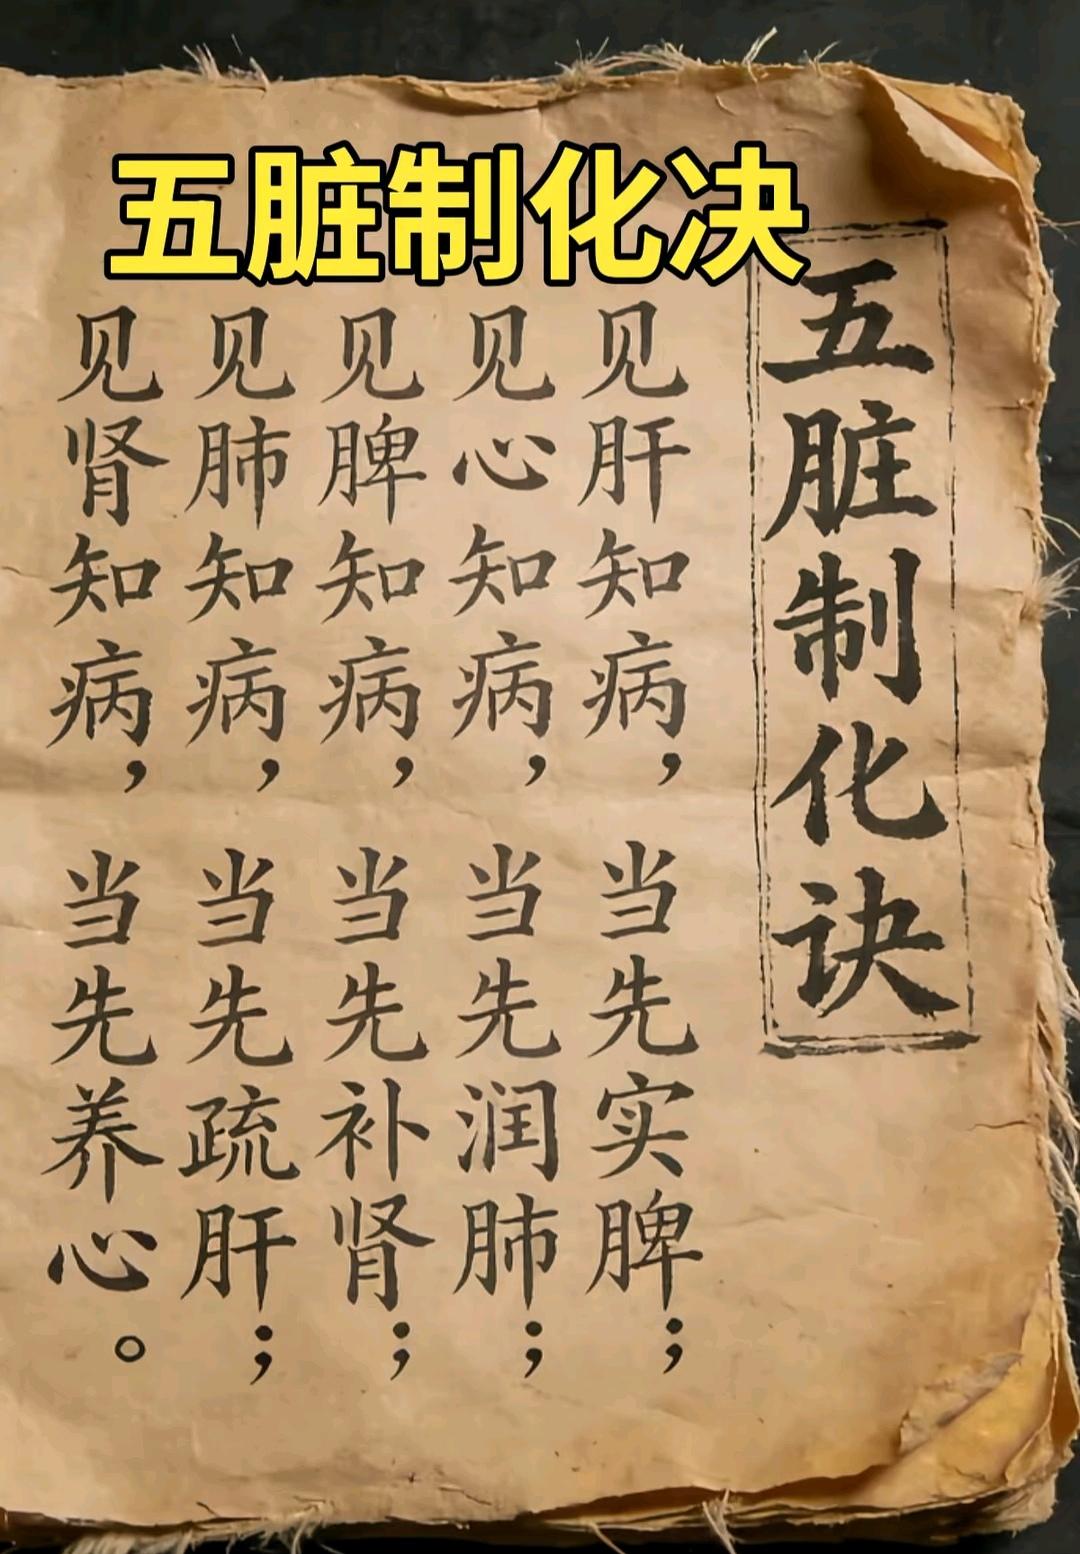 五脏制化决
五脏制化诀
见肝知病，当先实脾；
见心知病，当先润肺；
见脾知病，当先补肾；
见肺知病，当先疏肝；
见肾知病，当先养心。